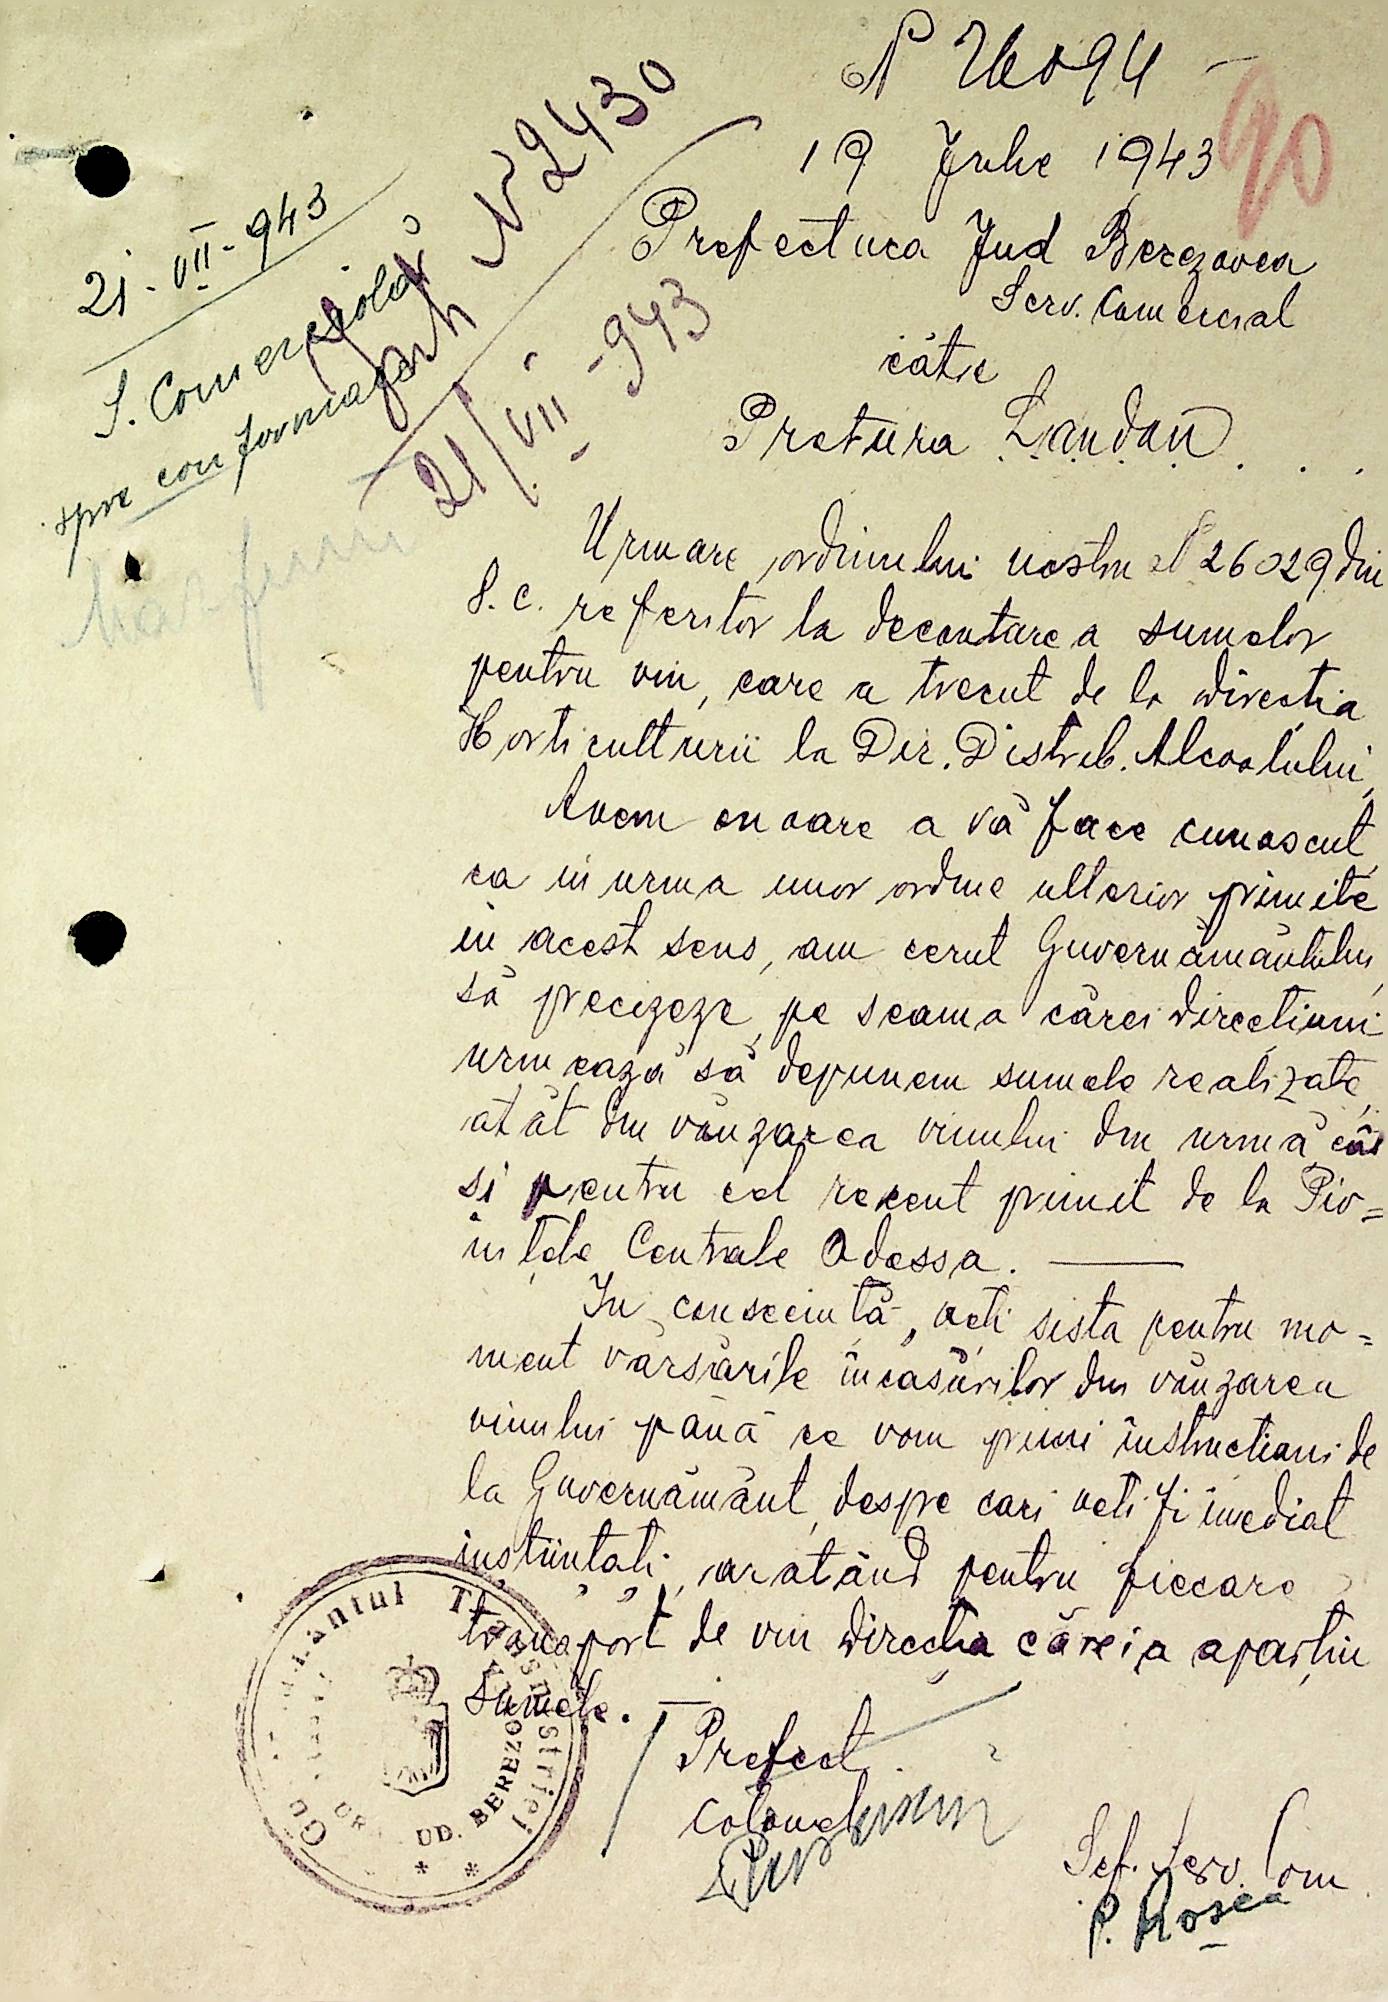 N 26094 –
90
19 Julie 1943
Prefectura Jud Berezovca
Serv. Comercial
către
Pretura Landau . . .
21-VII-943
S. Comercială
spre conformare
N 2430
21/VII-943
Urmare ordinului nostru N 26029 din
s.c. referitor la decontarea sumelor
pentru vin, care a trecut de la Direcția
Horticulturii la Dir. Distrib. Alcoolului,
Avem onoare a vă face cunoscut
ca in urma unor ordine ulterior primite
in acest sens, am cerut Guvernământului,
să precizeze, pe seama cărei Direcțiuni
urmează să depunem sumele realizate,
atât din vânzarea vinului din urmă cât
și pentru cel recent primit de la Piv=
nițele Centrale Odessa. —
In consecință, veți sista pentru mo=
ment vărsările încasărilor din vânzarea
vinului până ce vom primi instrucțiuni de
la Guvernământ, despre cari veți fi imediat
înștiințați, arătând pentru fiecare
transport de vin Direcția căreia aparțin
sumele. —
Guvernământul Transnistriei
JUD. BEREZOVCA
* *
Prefect
Colonel
Șef. Serv. Com
P. Roșca